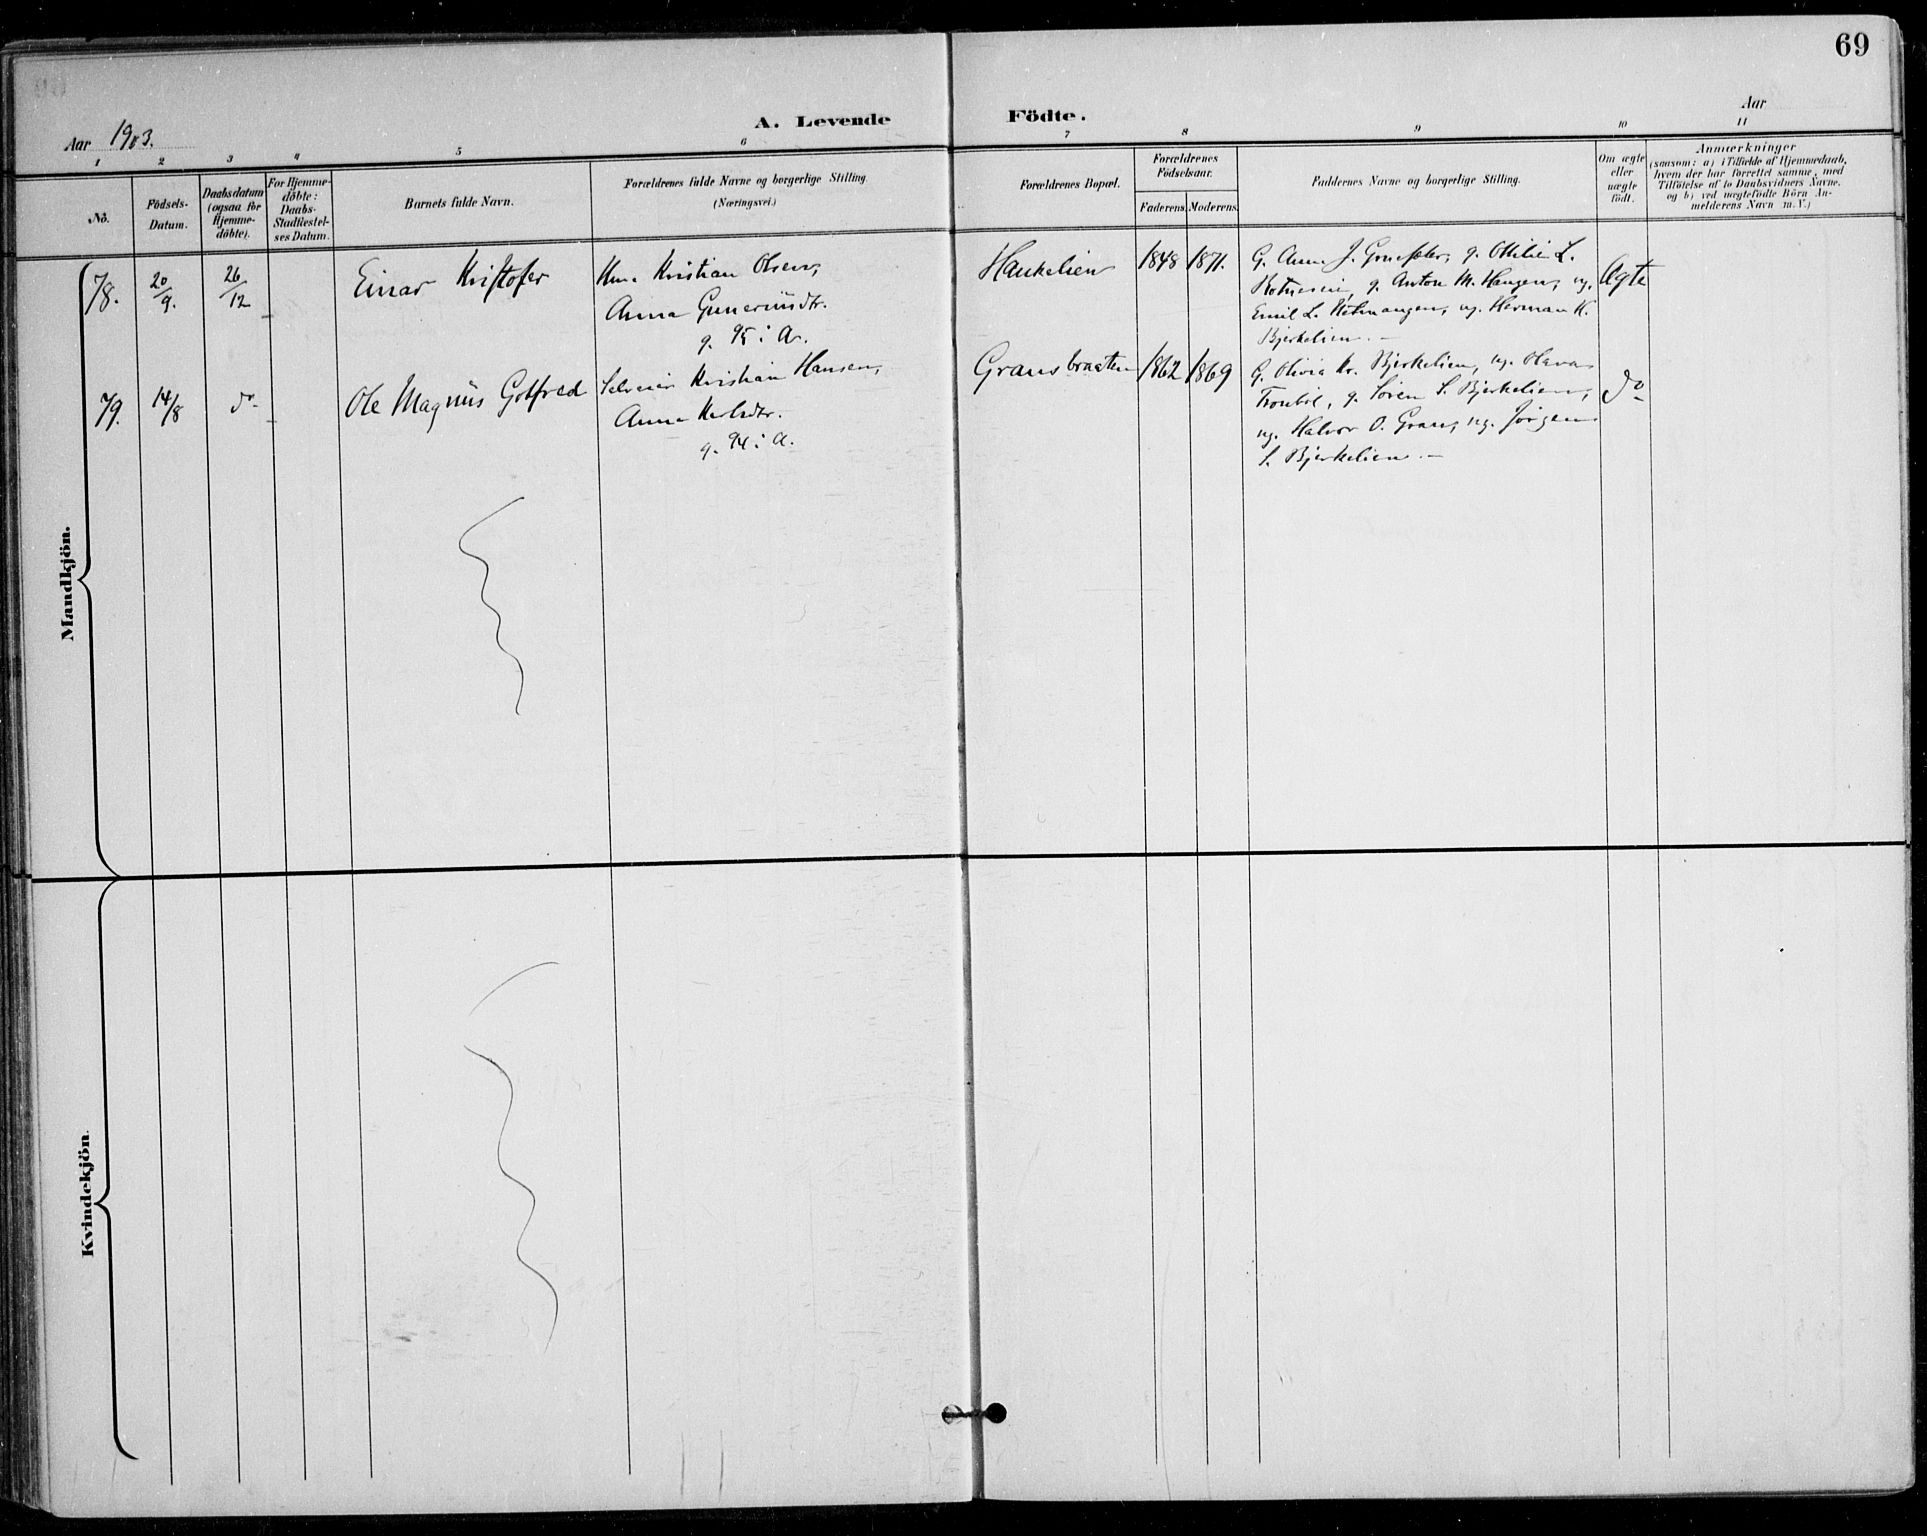 69
Aar 1903.
A. Levende Födte.
Aar
1 2 3 4 5 6 7 8 9 10 11
Nô.
Födsels-
Datum.
Daabsdatum
(ogsaa for
Hjemme-
döbte).
For Hjemme-
döbte:
Daabs-
Stadfæstel-
ses Datum.
Barnets fulde Navn.
Forældrenes fulde Navne og borgerlige Stilling.
(Næringsvei.)
Forældrenes Bopæl.
Forældrenes
Födselsaar.
Faderens. Moderens.
Faddernes Navne og borgerlige Stilling.
Om ægte
eller
uægte
födt.
Anmærkninger
(saasom: a) i Tilfælde af Hjemmedaab,
hvem der har forrettet samme, med
Tilföielse af to Daabsvidners Navne.
og b) ved uægtefödte Börn An-
melderens Navn m. V.)
Mandkjön.
78. 20/9. 26/12 Einar Kristofer
Kristian Olsen,
Anna
g. 95 i A.
Haukelien 1848 1871.
G. Anna J. g. Ottilie L.
g. Anton M. Haugen, ug.
Emil L. ug. Herman K.
Bjerkelien. –
Ægte
79. 14/8 do Ole Magnus Gotfred
Kristian Hansen,
Anna Karlsdtr.
g. 94 i A.
Gransbraaten 1862 1869
G. Olivia Kr. Bjerkelien, ug. Olava
g. Sören S. Bjerkelien,
ug. Halvor O. Gran, ug. Jörgen
S. Bjerkelien. –
do
Kvindekjön.